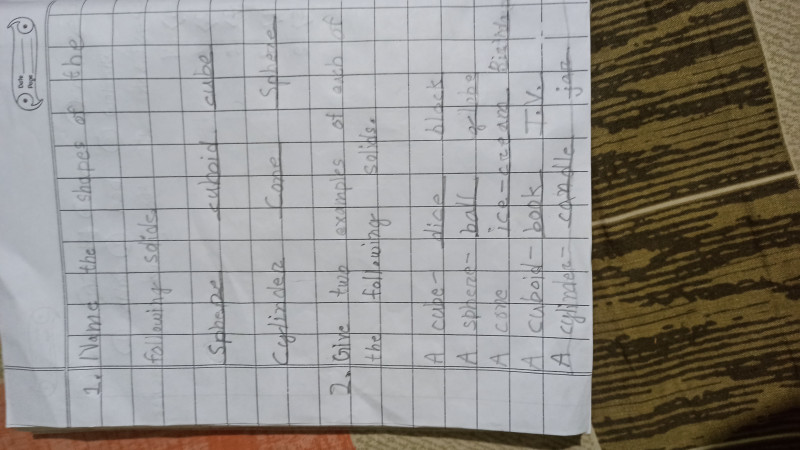 Date
Page
1. Name the shapes of the
following solids
Sphere cuboid cube
Cylinder Cone Sphere
2. Give two examples of each of
the following solids.
A cube- dice block
A sphere- ball globe
A cone ice-cream
A cuboid- book T.V.
A cylinder- candle jar